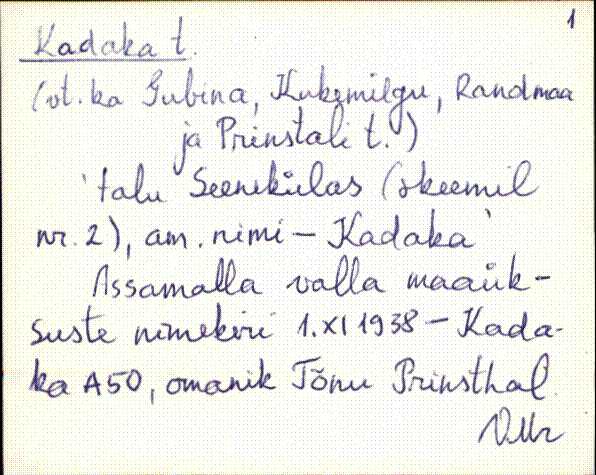 1
Kadaka t.
(vt. ka Gubina, Kukemilgu, Randmaa
ja Prinstali t.)
'talu Seenekülas (skeemil
nr. 2), am. nimi – Kadaka'
Assamalla valla maaük-
suste nimekiri 1. XI 1938 – Kada-
ka A50, omanik Tõnu Prinsthal